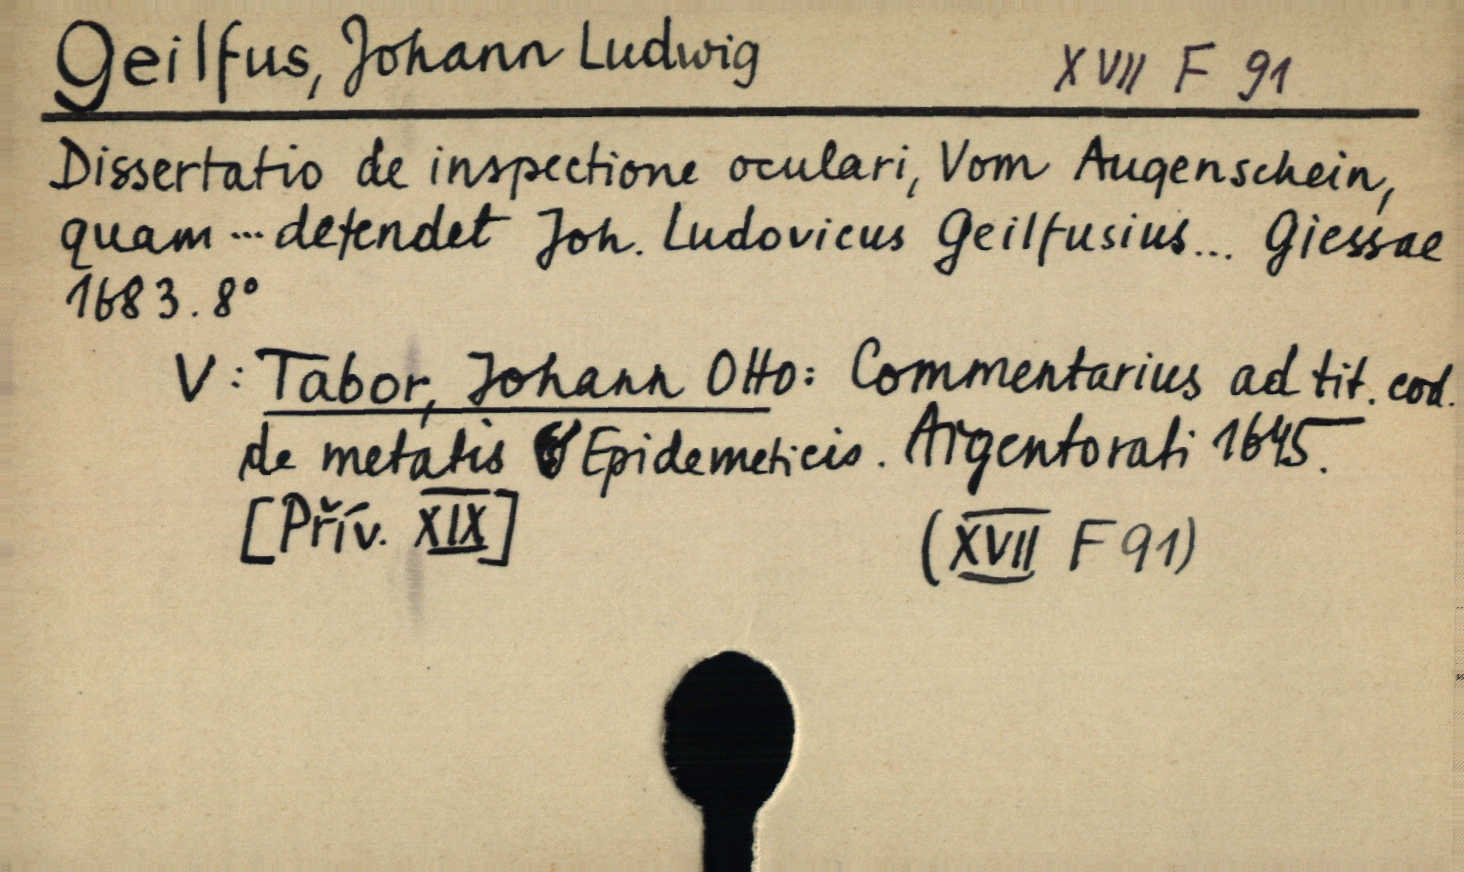 Geilfus, Johann Ludwig XVII F 91
Dissertatio de inspectione oculari, Vom Augenschein,
quam ... defendet Joh. Ludovicus Geilfusius... Giessae
1683. 8°
V: Tabor, Johann Otto: Commentarius ad tit. cod.
de metatis Epidemeticis. Argentorati 1645.
[Přív. XIX] (XVII F 91)